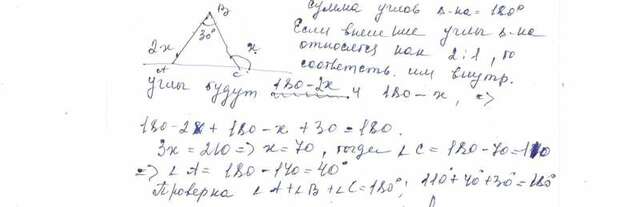 B
30°
2x
x
A
C
сумма углов Δ-ка = 180°
Если внешние углы Δ-ка
относятся как 2:1, то
соответств. им внутр.
углы будут 180-2x и 180-x, =>
180-2x + 180-x + 30 = 180.
3x = 210 => x = 70, тогда ∠C = 180-70 = 110
=> ∠A = 180-140 = 40°
Проверка ∠A+∠B+∠C=180°; 110°+40°+30°=180°